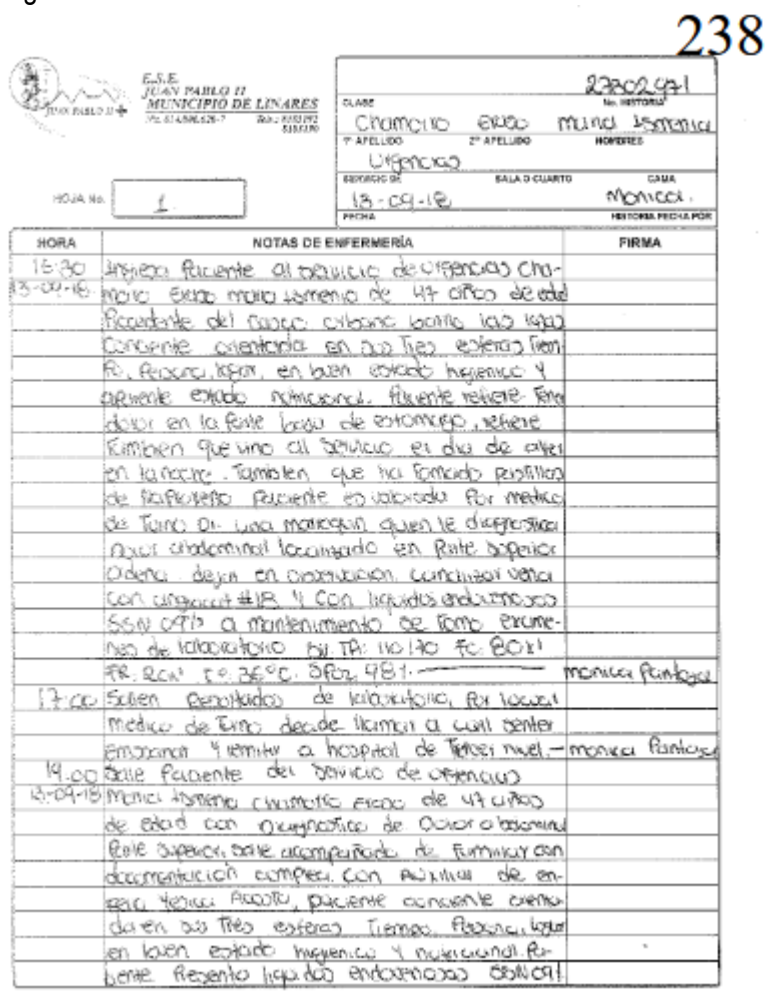 238
E.S.E.
JUAN PABLO II
MUNICIPIO DE LINARES
JUAN PABLO II
27302971
CLASE
No. HISTORIA
Chamorro Erazo Maria Ismenia
1º APELLIDO 2º APELLIDO NOMBRES
Urgencias
SERVICIO DE SALA O CUARTO CAMA
HOJA No. 1
13-09-18 Monica.
FECHA HISTORIA FECHA POR
HORA NOTAS DE ENFERMERÍA FIRMA
Ingresa Paciente al servicio de urgencias Cha-
13-09-18. morro Erazo maria ismenia de 47 años de edad
Procedente del casco urbano barrio las lajas
Conciente orientada en sus Tres esferas Tiem-
Po, Persona, lugar, en buen estado higienico y
aparente estado nutricional. Paciente refiere Tener
dolor en la parte baja de estomago, refiere
Tambien que vino al servicio el dia de ayer
en la noche. Tambien que ha Tomado pastillas
de Paciente es valorada Por medico
de Turno Dr. quien le diagnostica
Dolor abdominal localizado en Parte superior
Ordena dejar en observacion canalizar vena
con #18 y Con liquidos endovenosos
SSN 09% a mantenimiento se Tomo exame-
nes de laboratorio TA: 110/70 FC: 80x1
FR: 20x1 Tº: 36ºC. SPO2 98%. monica Pantoja
17:00 Salen Resultados de laboratorio, Por lo cual
medico de Turno decide llamar a
y remitir a hospital de Tercer nivel.- monica Pantoja
19.00 Sale Paciente del servicio de urgencias
13-09-18 Maria Ismenia chamorro Erazo de 47 años
de edad con Diagnostico de Dolor abdominal
Parte superior, sale acompañada de Familiar con
documentacion completa. Con Auxiliar de en-
Yesica Acosta, paciente conciente orienta-
da en sus Tres esferas Tiempo, Persona, lugar
en buen estado higienico y nutricional. Pa-
ciente Presenta liquidos endovenosos SSN 09%